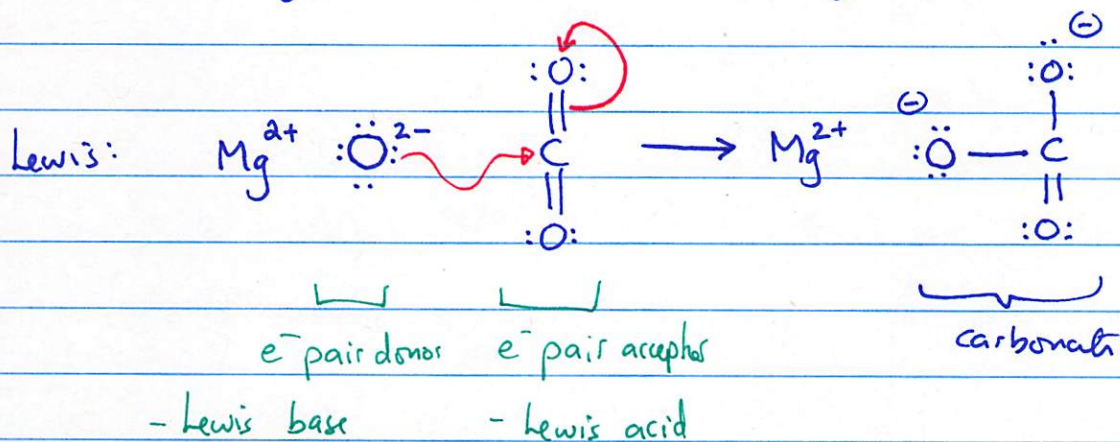 Lewis: Mg²⁺ :Ö:²⁻ :O: = C = :O: ⟶ Mg²⁺ ⊖ :Ö — C :Ö: ⊖ = :O:
e⁻ pair donor e⁻ pair acceptor carbonate
- Lewis base - Lewis acid